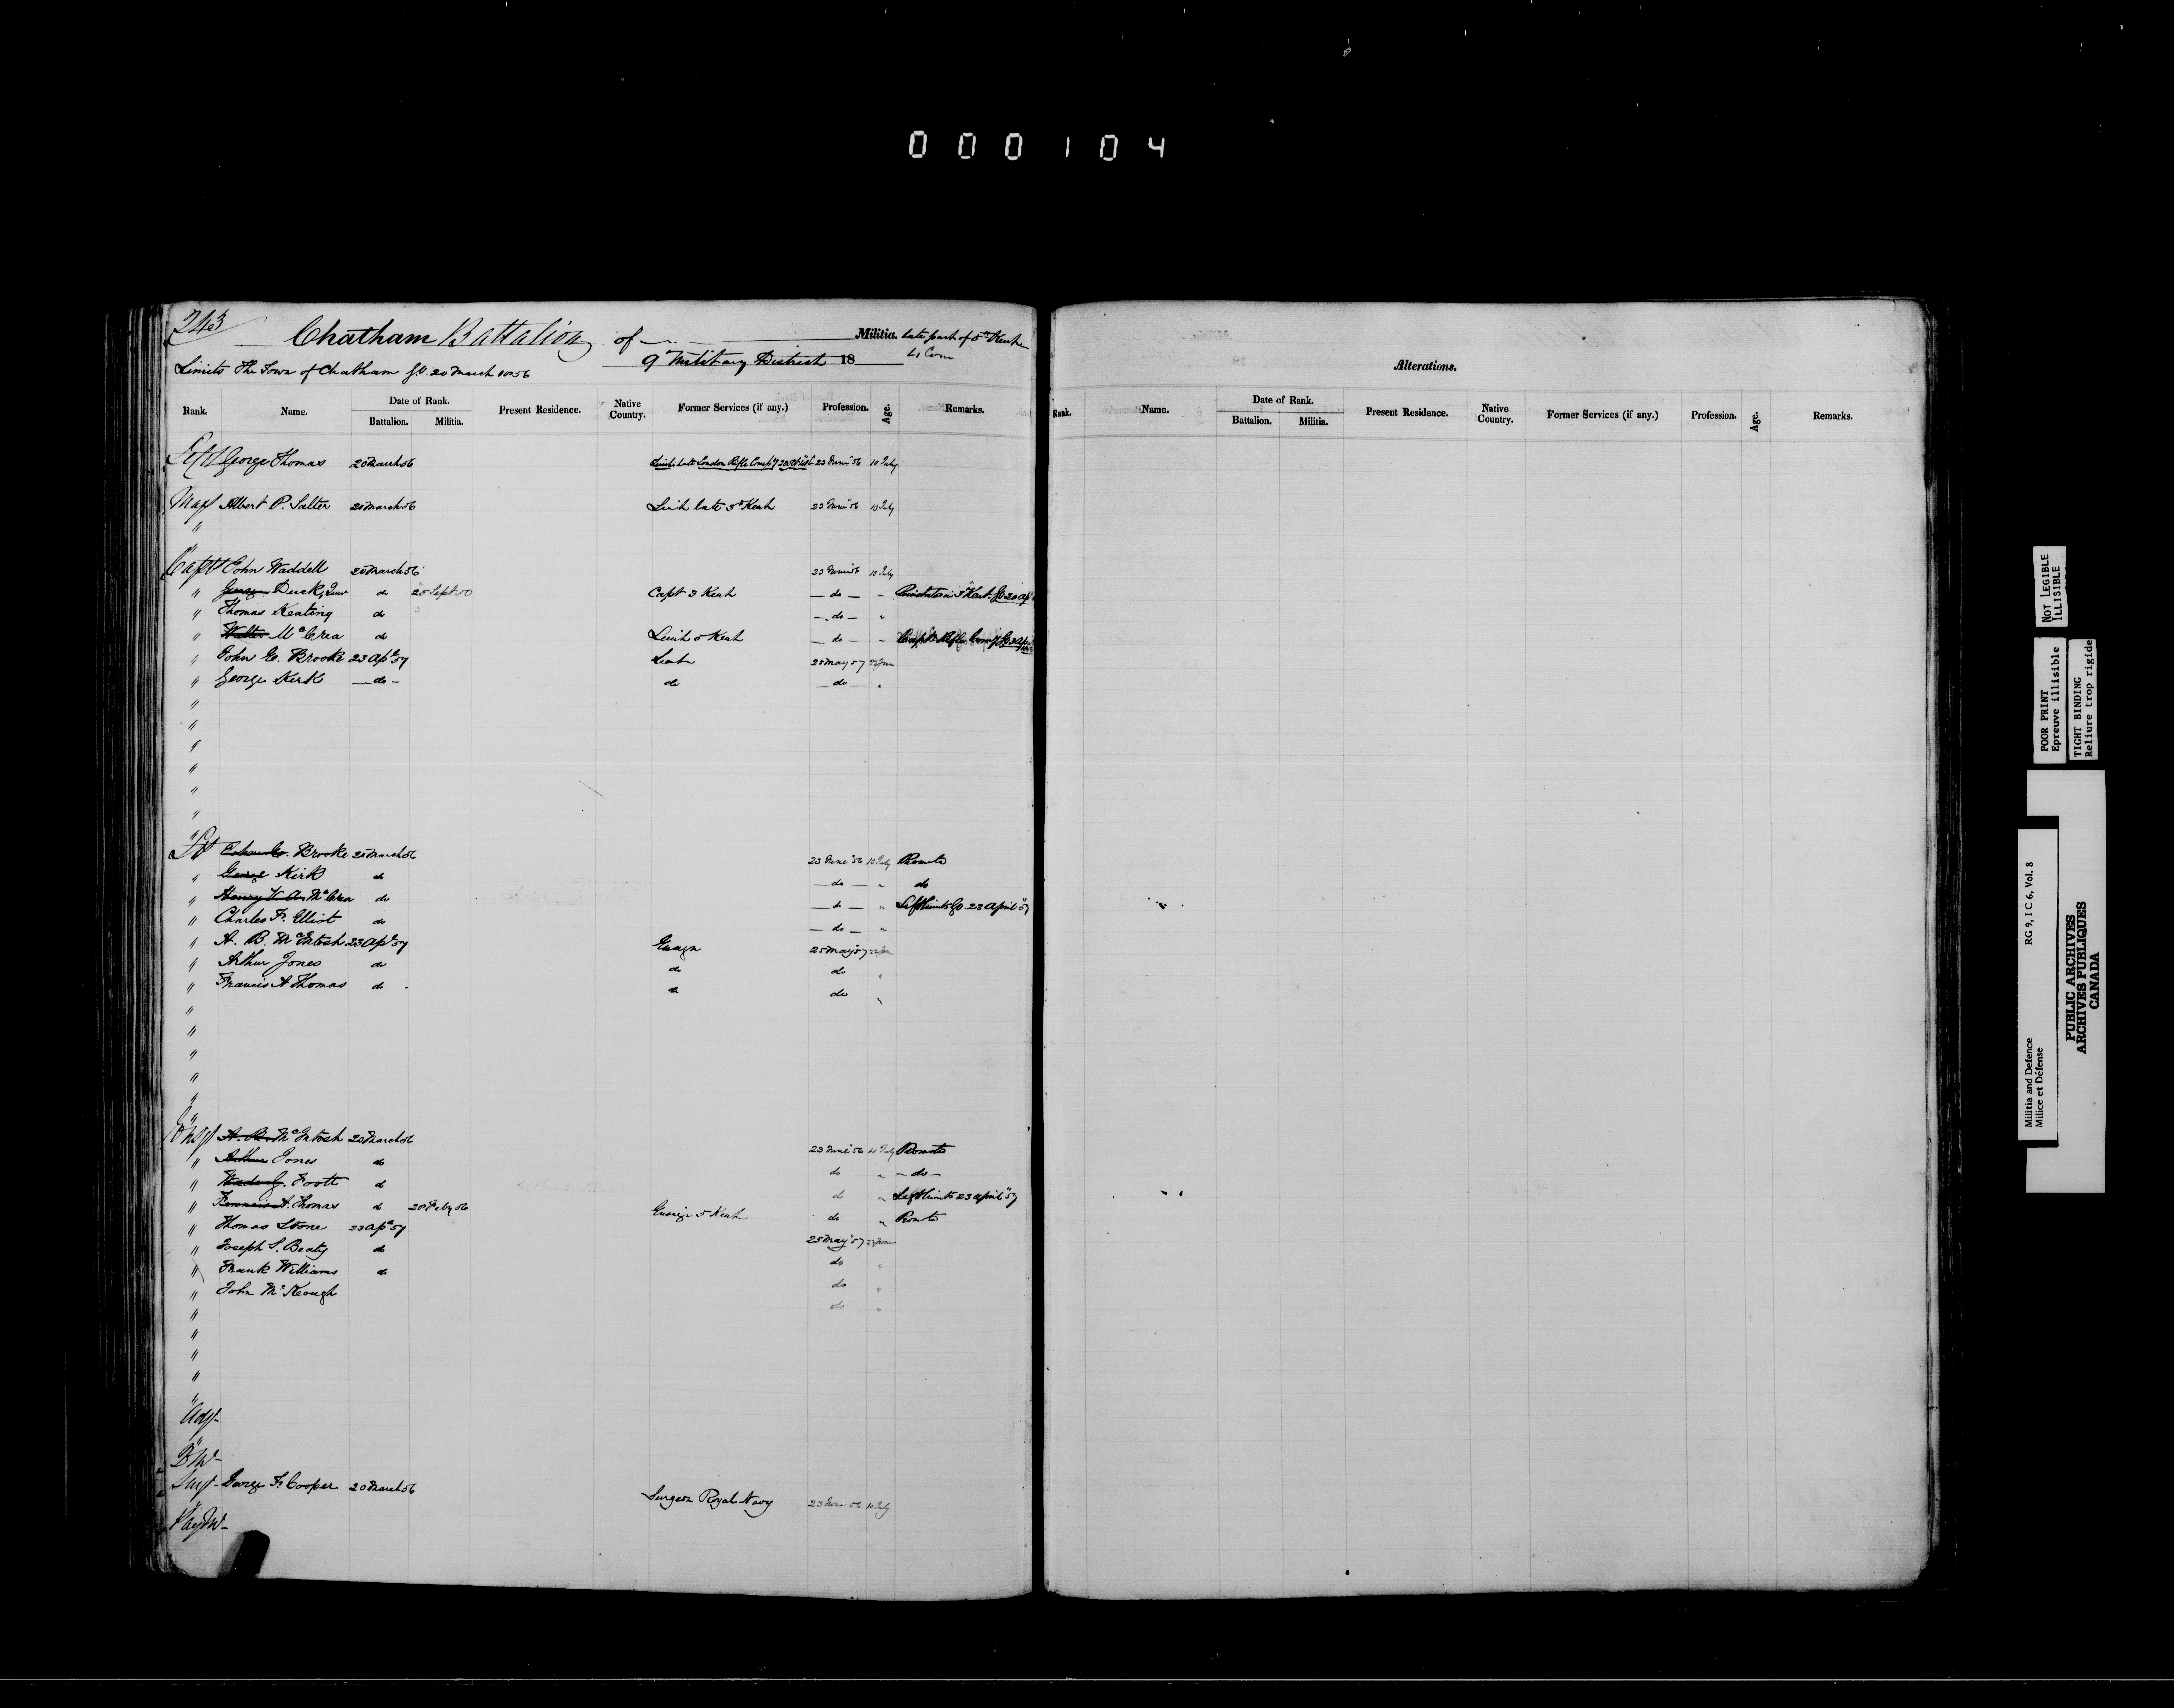 000104
243
Chatham Battalion of Militia. late part of 5th Kent
9th Military District 18
4 Com
Limits The Town of Chatham G.O. 20 March 1856
Alterations.
Rank. Name. Date of Rank. Battalion. Militia. Present Residence. Native Country. Former Services (if any.) Profession. Age. Remarks.
Rank. Name. Date of Rank. Battalion. Militia. Present Residence. Native Country. Former Services (if any.) Profession. Age. Remarks.
George Thomas 20 March 56 late London Rifle 23 June 56 10 July
Maj Albert P. Salter 20 March 56 late 3d Kent 23 June 56 10 July
"
Capt John Waddell 20 March 56 23 June 56 10 July
" George Duck, Junr do 20 Sept 50 Capt 3 Kent — do — "
" Thomas Keating do — do — "
" Walter McCrea do Lieut 5 Kent — do — "
" John E. Brooke 23 Apl 57 Lieut 25 May 57
" George Kirk — do — do — do — "
"
"
"
"
"
"
"
Lt Brooke 20 March 56 23 June 56 10 July Promoted
" George Kirk do — do — " do
" Henry McCrea do — do — " Left Limits GO 23 April 57
" Charles F. Elliot do — do — "
" A. B. McIntosh 23 Apl 57 Ensign 25 May 57
" Arthur Jones do do do "
" Francis A Thomas do do do "
"
"
"
"
"
Ensgn A. B. McIntosh 20 March 56 23 June 56 10 July Promoted
" Arthur Jones do do " — do —
" Wade G. Foott do do " Left Limits 23 April 57
" Francis A. Thomas do 20 Feby 56 Ensign 5 Kent do " Promoted
" Thomas Stone 23 Apl 57 25 May 57
" Joseph S. Beaty do do "
" Frank Williams do do "
" John McKeough do "
"
"
"
"
"
Adjt
"
Surg George F. Cooper 20 March 56 Surgeon Royal Navy 23 June 56 10 July
"
Pay M
NOT LEGIBLE
ILLISIBLE
POOR PRINT
Epreuve illisible
TIGHT BINDING
Reliure trop rigide
Militia and Defence
Milice et Défense
RG 9, I C 6, Vol. 8
PUBLIC ARCHIVES
ARCHIVES PUBLIQUES
CANADA